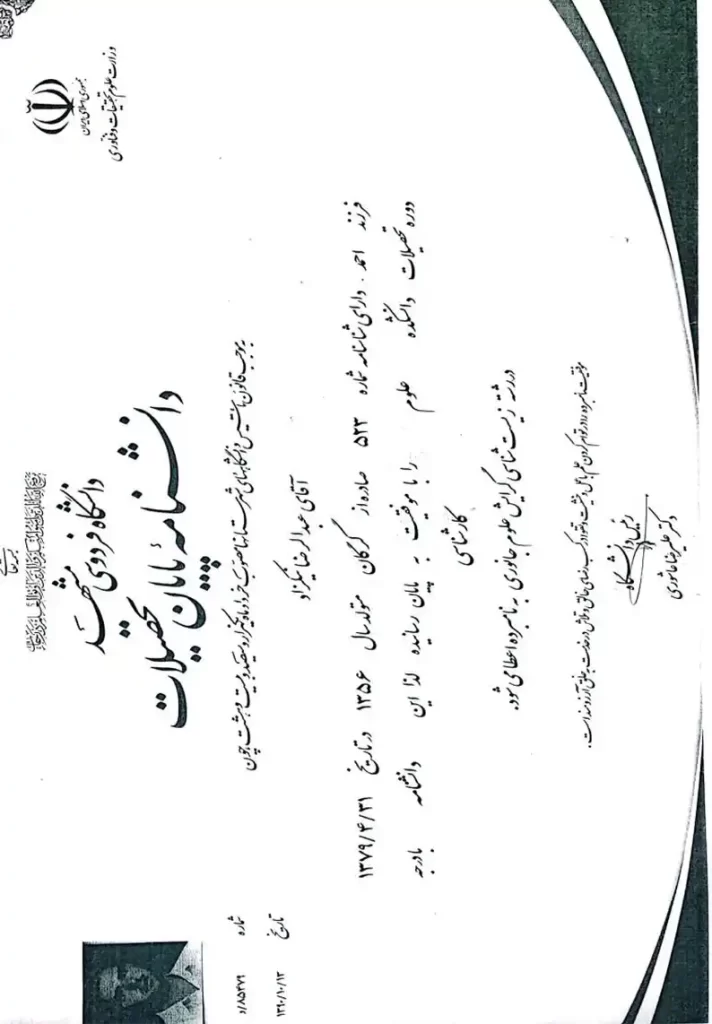 جمهوری اسلامی ایران
وزارت علوم تحقیقات و فناوری
دانشگاه فردوسی مشهد
دانشنامه پایان تحصیلات
شماره د/۸۵۴۷۹
تاریخ ۱۳۹۰/۱۰/۱۳
بموجب قانون تأسیس دانشگاههای شهرستانها مصوب خرداد ماه یکهزار و سیصد و بیست و هشت چون
آقای عبدالرضا نیکزاد
فرزند احمد . دارای شناسنامه شماره ۵۲۳ صادره از گرگان متولد سال ۱۳۵۶ در تاریخ ۱۳۷۹/۴/۳۱
دوره تحصیلات دانشکده علوم را با موفقیت به پایان رسانیده لذا این دانشنامه با درجه
کارشناسی
در رشته زیست شناسی گرایش علوم جانوری به نامبرده اعطا می شود.
موفقیت نامبرده را در توأم کردن علم با عمل و کسب رضای خالق و تلاش در خدمت به خلق آرزومند است.
رئیس دانشگاه
دکتر علیرضا عاشوری